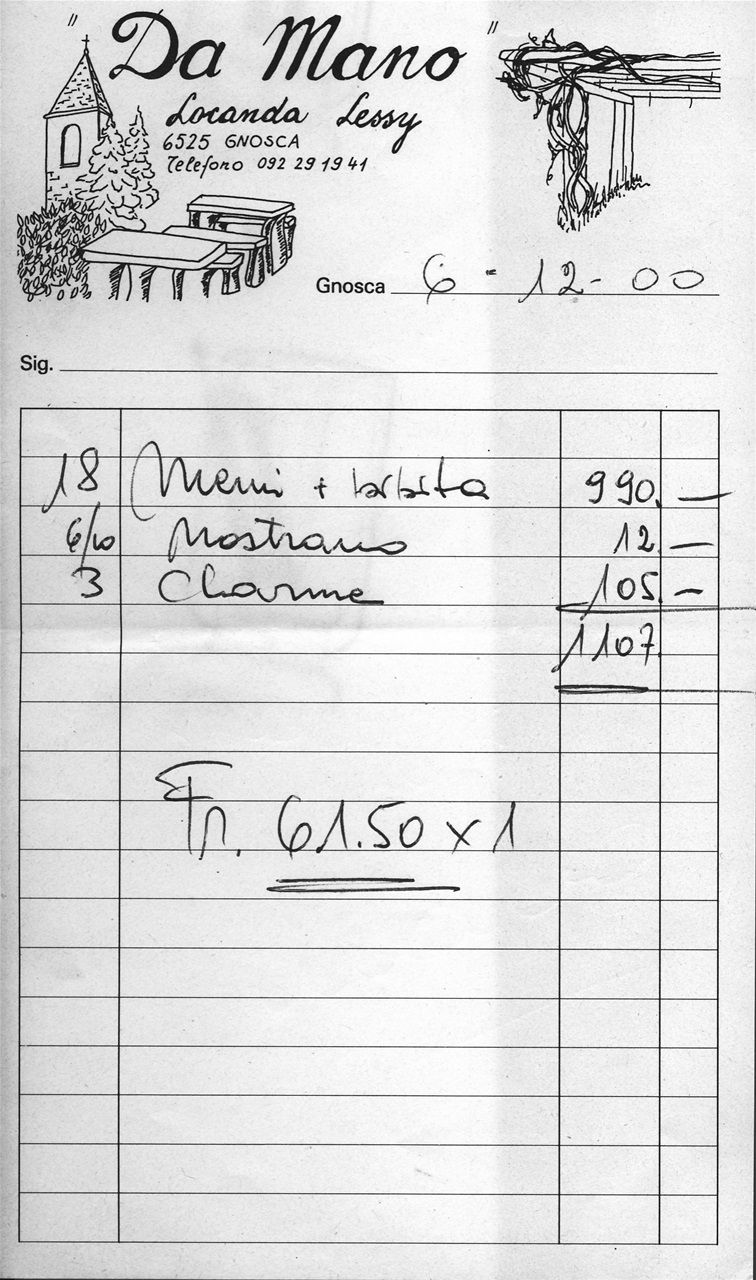 "Da Mano"
Locanda Lessy
6525 GNOSCA
Telefono 092 29 19 41
Gnosca 6-12-00
Sig.
18 Menu + bibita 990.—
6/10 Nostrano 12.—
3 Charme 105.—
1107.
Fr. 61.50 x 1